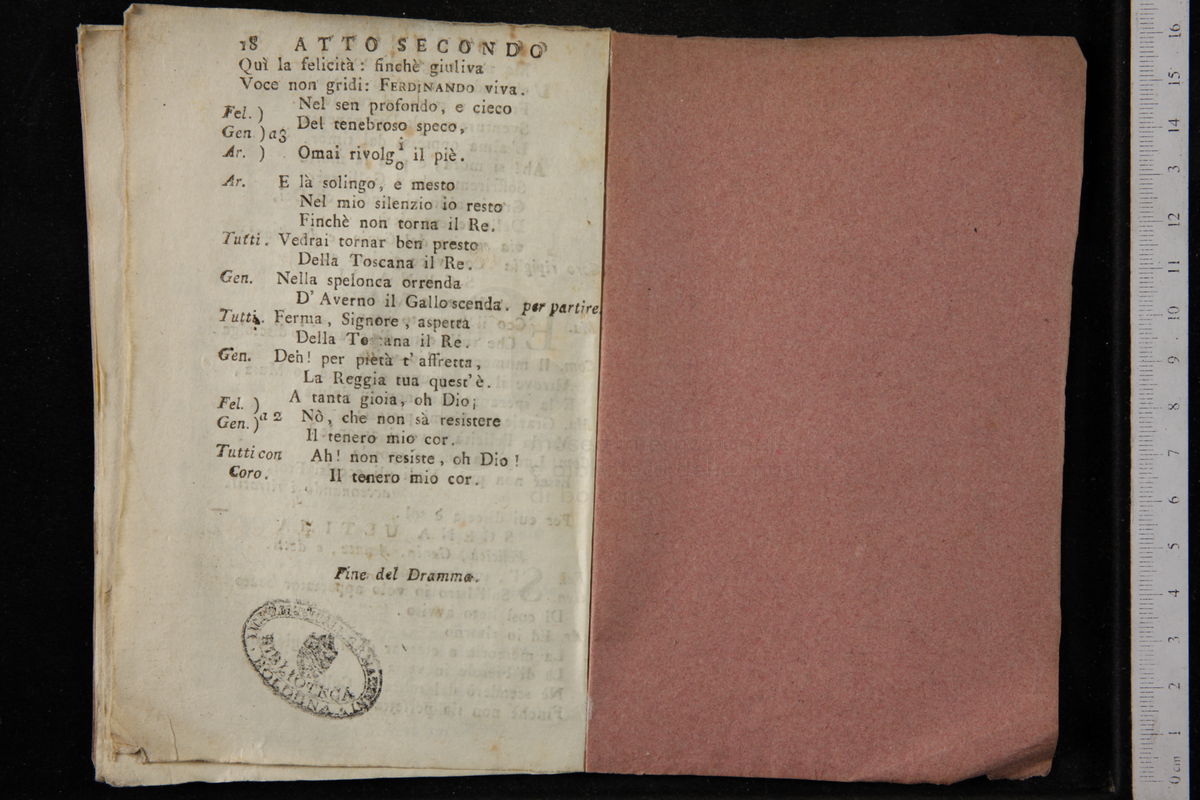 18 ATTO SECONDO
Quì la felicità: finchè giuliva
Voce non gridi: FERDINANDO viva.
Fel. ) Nel sen profondo, e cieco
Gen ) a3 Del tenebroso speco,
Ar. ) Omai rivolg i/o il piè.
Ar. E là solingo, e mesto
Nel mio silenzio io resto
Finchè non torna il Re.
Tutti. Vedrai tornar ben presto
Della Toscana il Re.
Gen. Nella spelonca orrenda
D' Averno il Gallo scenda. per partire.
Tutti. Ferma, Signore, aspetta
Della Toscana il Re.
Gen. Deh! per pietà t' affretta,
La Reggia tua quest' è.
Fel. ) A tanta gioia, oh Dio;
Gen. ) a 2 Nò, che non sà resistere
Il tenero mio cor.
Tutti con Ah! non resiste, oh Dio!
Coro. Il tenero mio cor.
Fine del Dramma.
BIBLIOTECA
BOLOGNA
16
15
14
13
12
11
10
9
8
7
6
5
4
3
2
1
0 cm